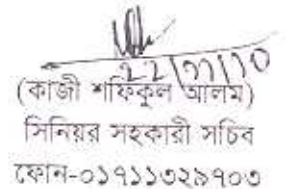 (কাজী শফিকুল আলম)
সিনিয়র সহকারী সচিব
ফোন-০১৭১১৩২৯৭০৩